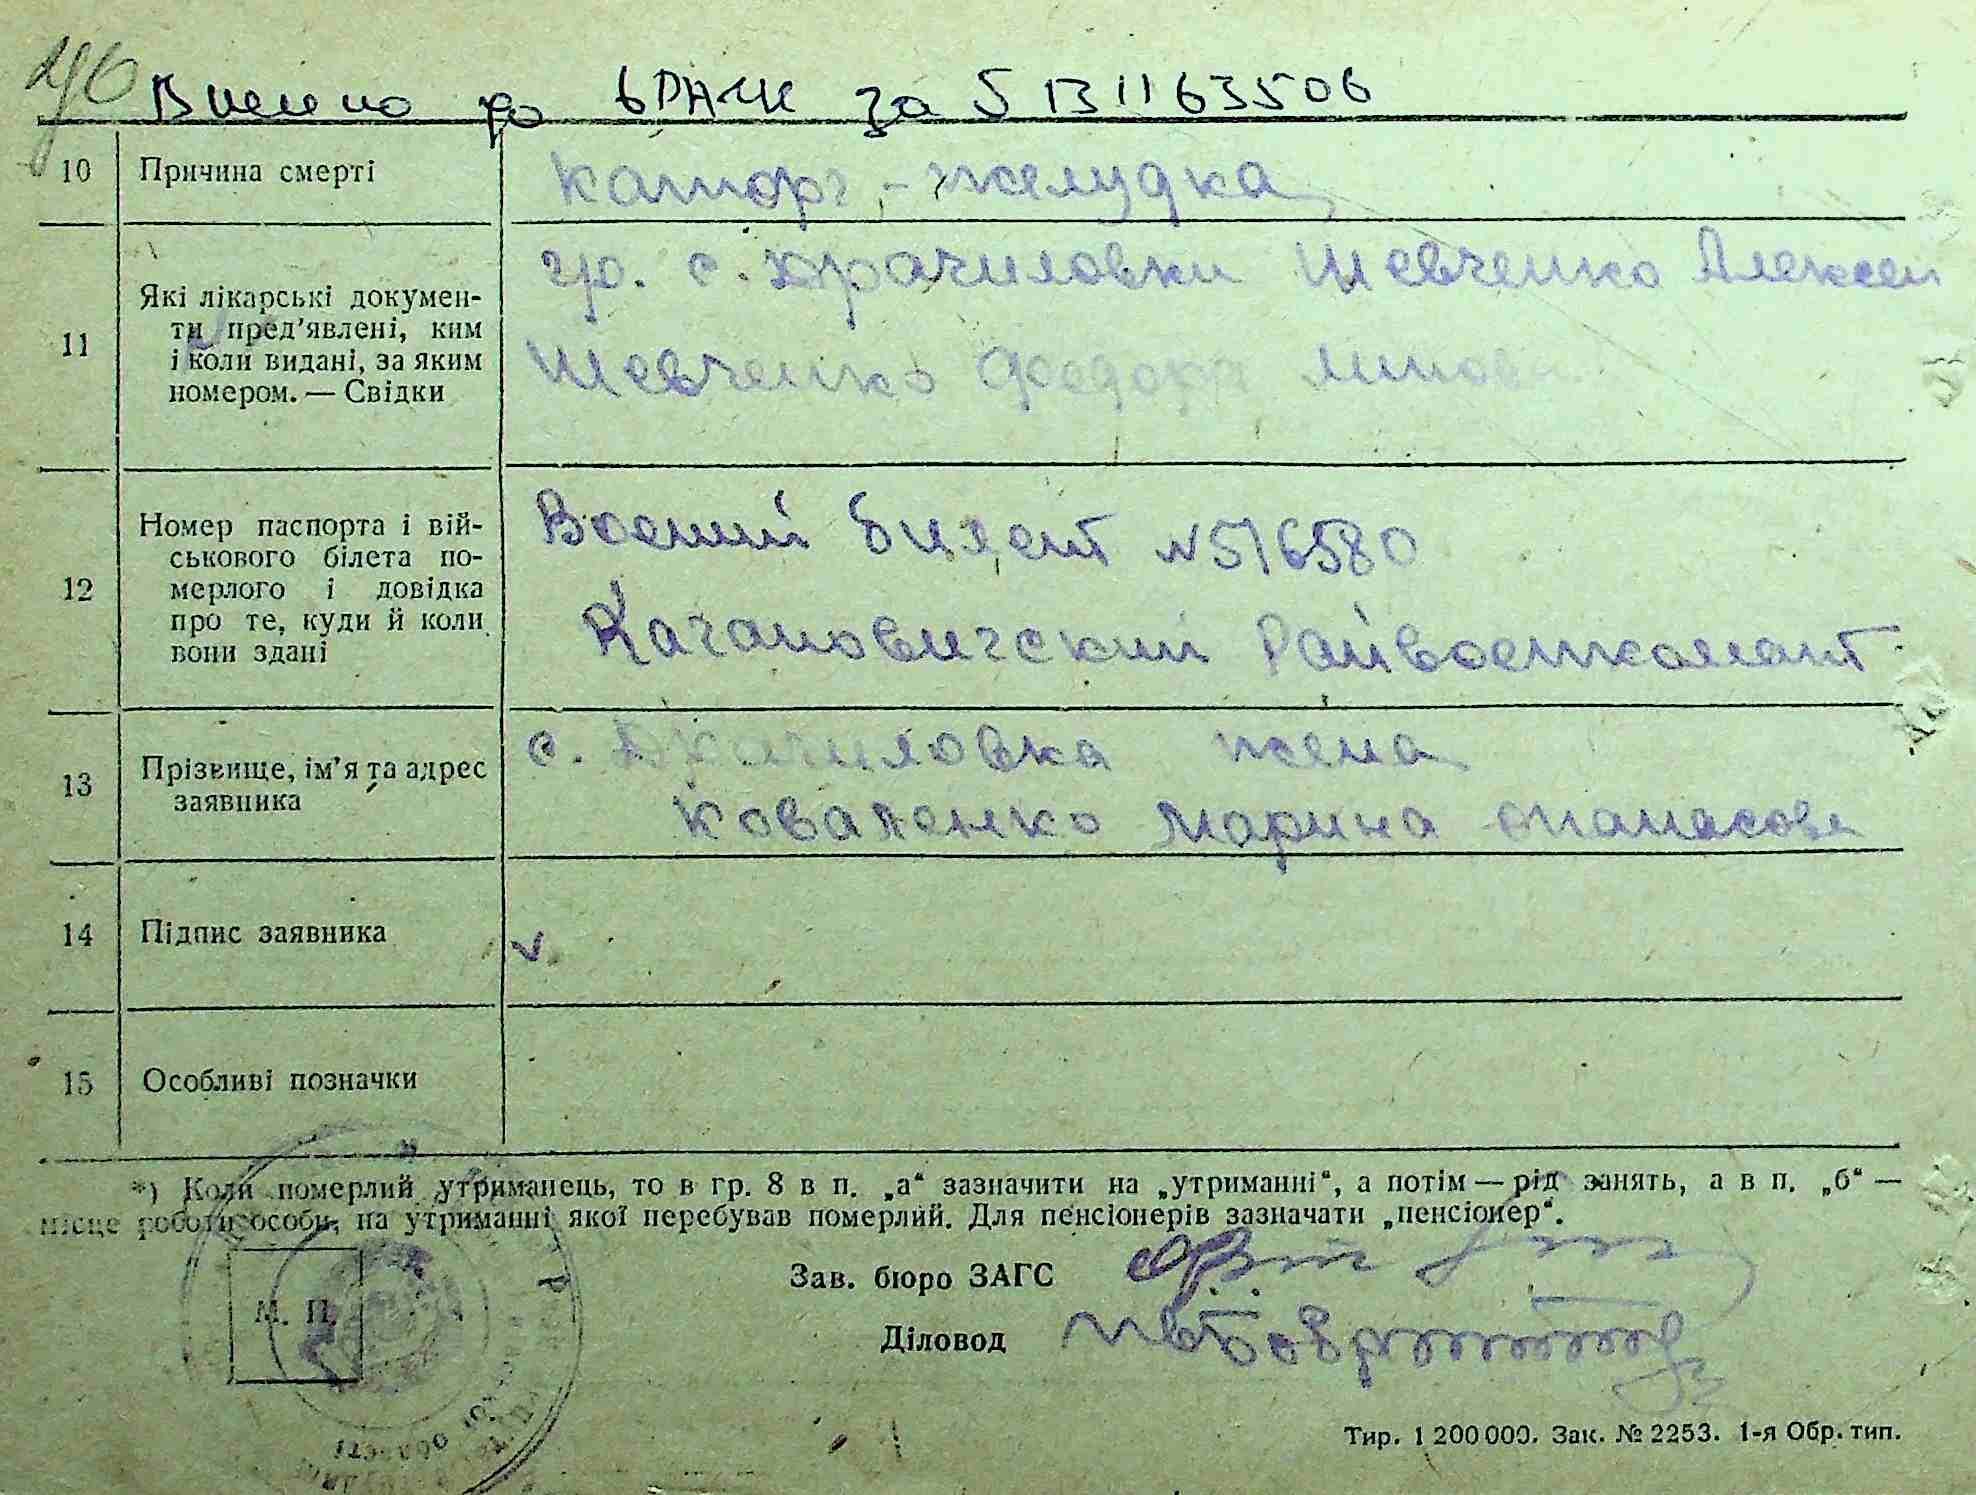 Внесено до ДРАЦС за 5 13 11 63506
10 Причина смерті
Каторг - желудка
11 Які лікарські докумен-
ти пред'явлені, ким
і коли видані, за яким
номером. — Свідки
гр. с. Драчиловки Шевченко Алексей
Шевченко Федора
12 Номер паспорта і вій-
ськового білета по-
мерлого і довідка
про те, куди й коли
вони здані
Военний билет №516580
Кагановичский Райвоенкомат
13 Прізвище, ім'я та адрес
заявника
с. Драчиловка жена
Коваленко Марина
14 Підпис заявника
v
15 Особливі позначки
*) Коли померлий утриманець, то в гр. 8 в п. „а“ зазначити на „утриманні“, а потім — рід занять, а в п. „б“ —
місце роботи особи, на утриманні якої перебував померлий. Для пенсіонерів зазначати „пенсіонер“.
Зав. бюро ЗАГС
М. П.
Діловод
Тир. 1 200 000. Зак. № 2253. 1-я Обр. тип.